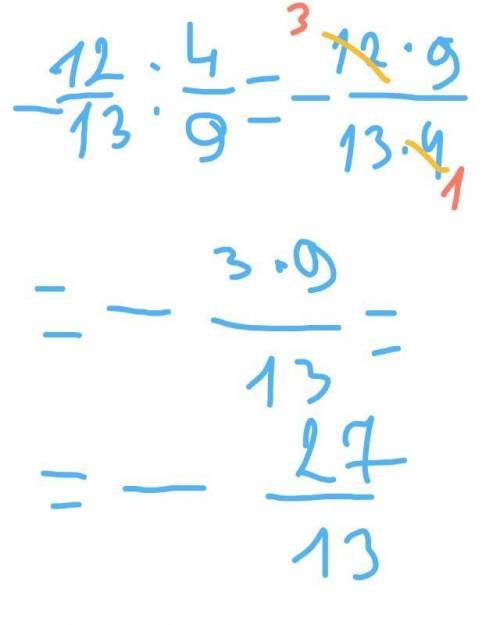 -12/13 : 4/9 = - 12·9/13·4 3 1
= - 3·9/13 =
= - 27/13